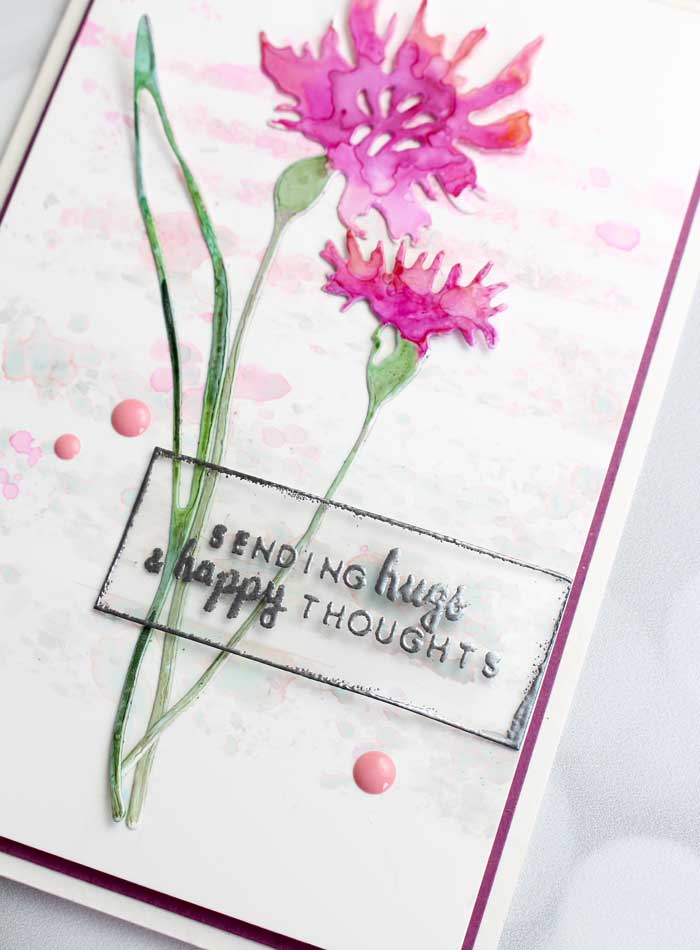 SENDING hugs
& happy THOUGHTS